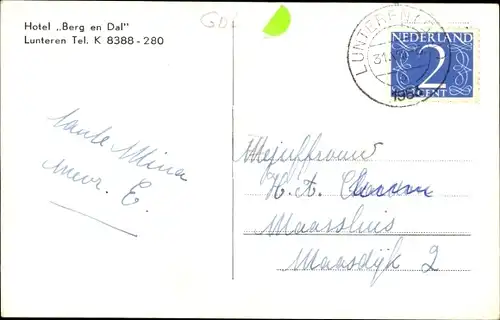 Hotel „Berg en Dal"
Lunteren Tel. K 8388 - 280
LUNTEREN
NEDERLAND
2
CENT
tante Mina
mevr. E.
Mejuffrouw
H. A.
Maassluis
Maasdijk 2